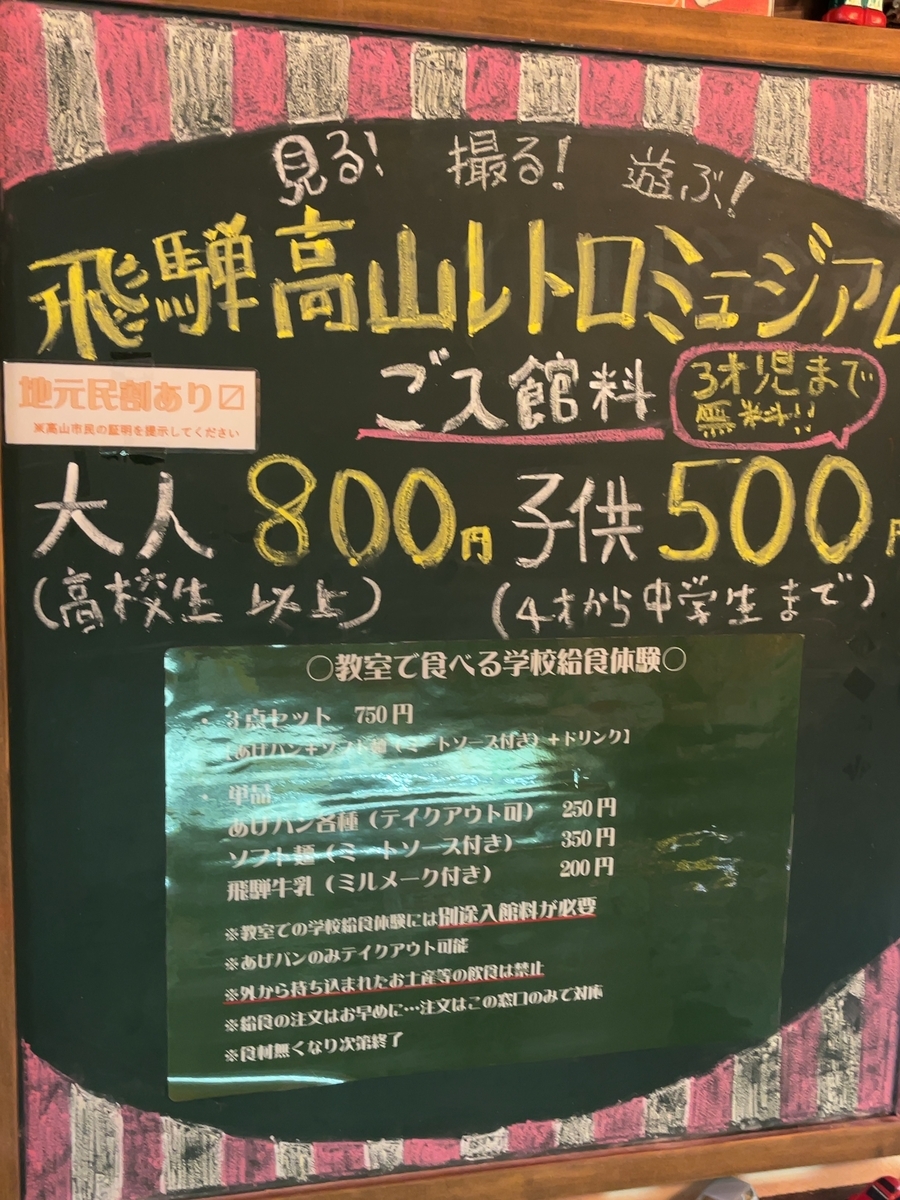 見る! 撮る! 遊ぶ!
飛騨高山レトロミュージアム
地元民割あり〼
※高山市民の証明を提示してください
ご入館料
3才児まで
無料!!
大人 800円 子供 500円
(高校生 以上) (4才から中学生まで)
〇教室で食べる学校給食体験〇
・3点セット 750円
【あげパン+ソフト麺(ミートソース付き)+ドリンク】
・単品
あげパン各種(テイクアウト可) 250円
ソフト麺(ミートソース付き) 350円
飛騨牛乳(ミルメーク付き) 200円
※教室での学校給食体験には別途入館料が必要
※あげパンのみテイクアウト可能
※外から持ち込まれたお土産等の飲食は禁止
※給食の注文はお早めに…注文はこの窓口のみで対応
※食材無くなり次第終了